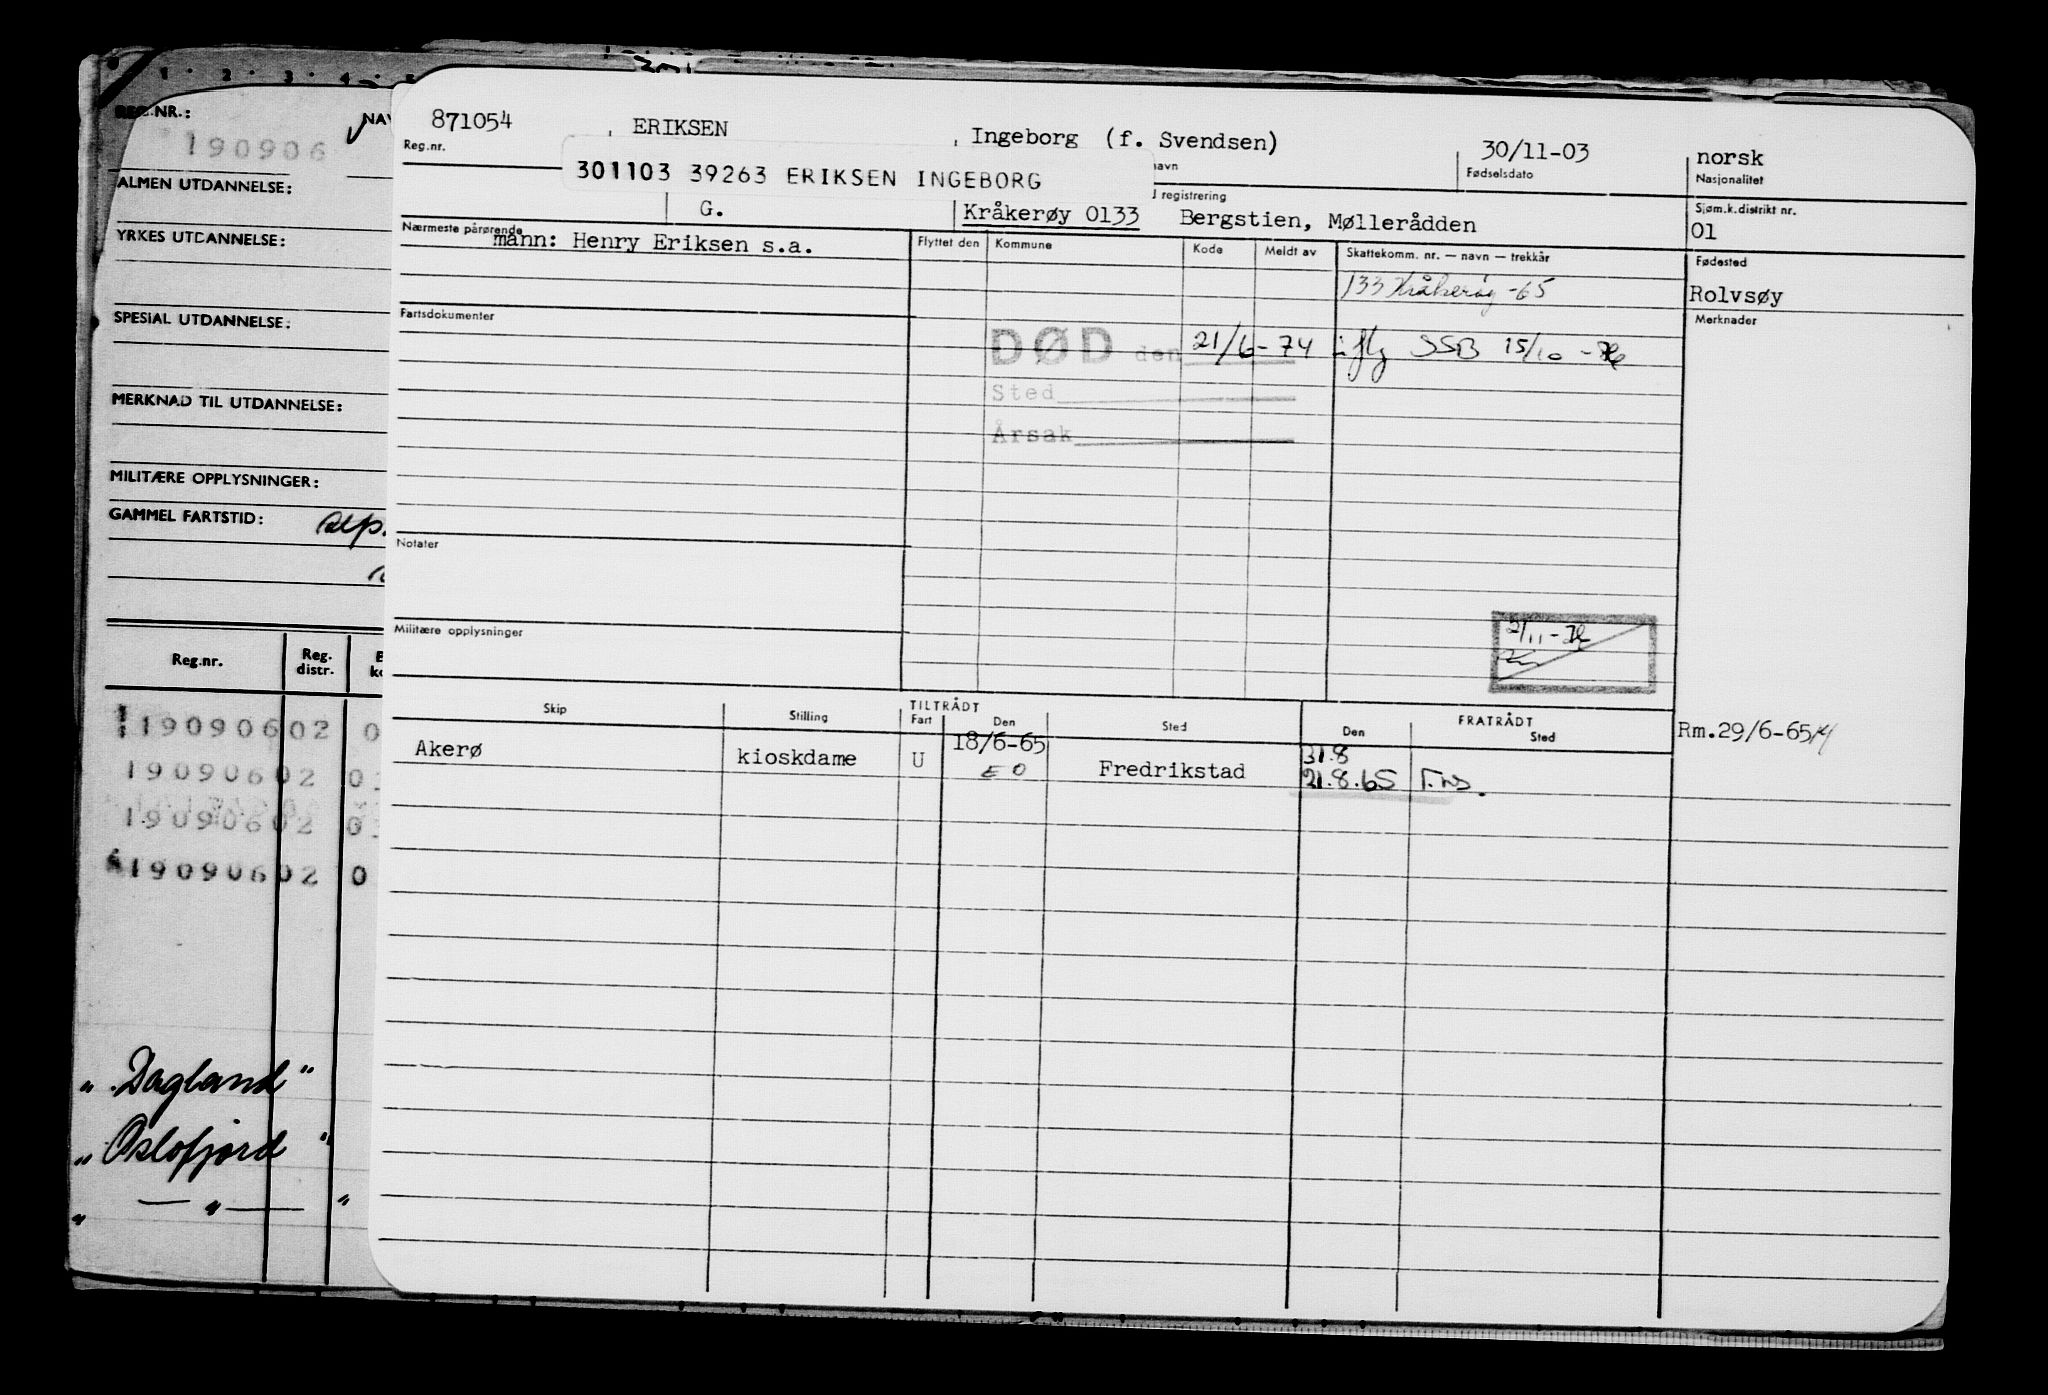 REG.NR.:
190906
ALMEN UTDANNELSE:
YRKES UTDANNELSE:
SPESIAL UTDANNELSE:
MERKNAD TIL UTDANNELSE:
MILITÆRE OPPLYSNINGER:
GAMMEL FARTSTID:
Reg.nr. Reg. distr.
19090602 0
19090602 0
19090602 0
19090602 0
"Dagland"
"Oslofjord"
— " — "
871054 , ERIKSEN , Ingeborg (f. Svendsen) 30/11-03 norsk
Reg.nr. navn Fødselsdato Nasjonalitet
301103 39263 ERIKSEN INGEBORG
registrering Sjøm.k.distrikt nr.
G. Kråkerøy 0133 Bergstien, Møllerådden 01
Nærmeste pårørende Flyttet den Kommune Kode Meldt av Skattekomm. nr. — navn — trekkår Fødested
mann: Henry Eriksen s.a.
133 Kråkerøy -65 Rolvsøy
Fartsdokumenter Merknader
DØD den 21/6-74 iflg SSB 15/10 -76
Sted
Årsak
Notater
Militære opplysninger
2/11-76
Skip Stilling TILTRÅDT Fart Den Sted FRATRÅDT Den Sted
Akerø kioskdame U 18/6-65 Fredrikstad 31.8 Rm.29/6-65
EO 21.8.65